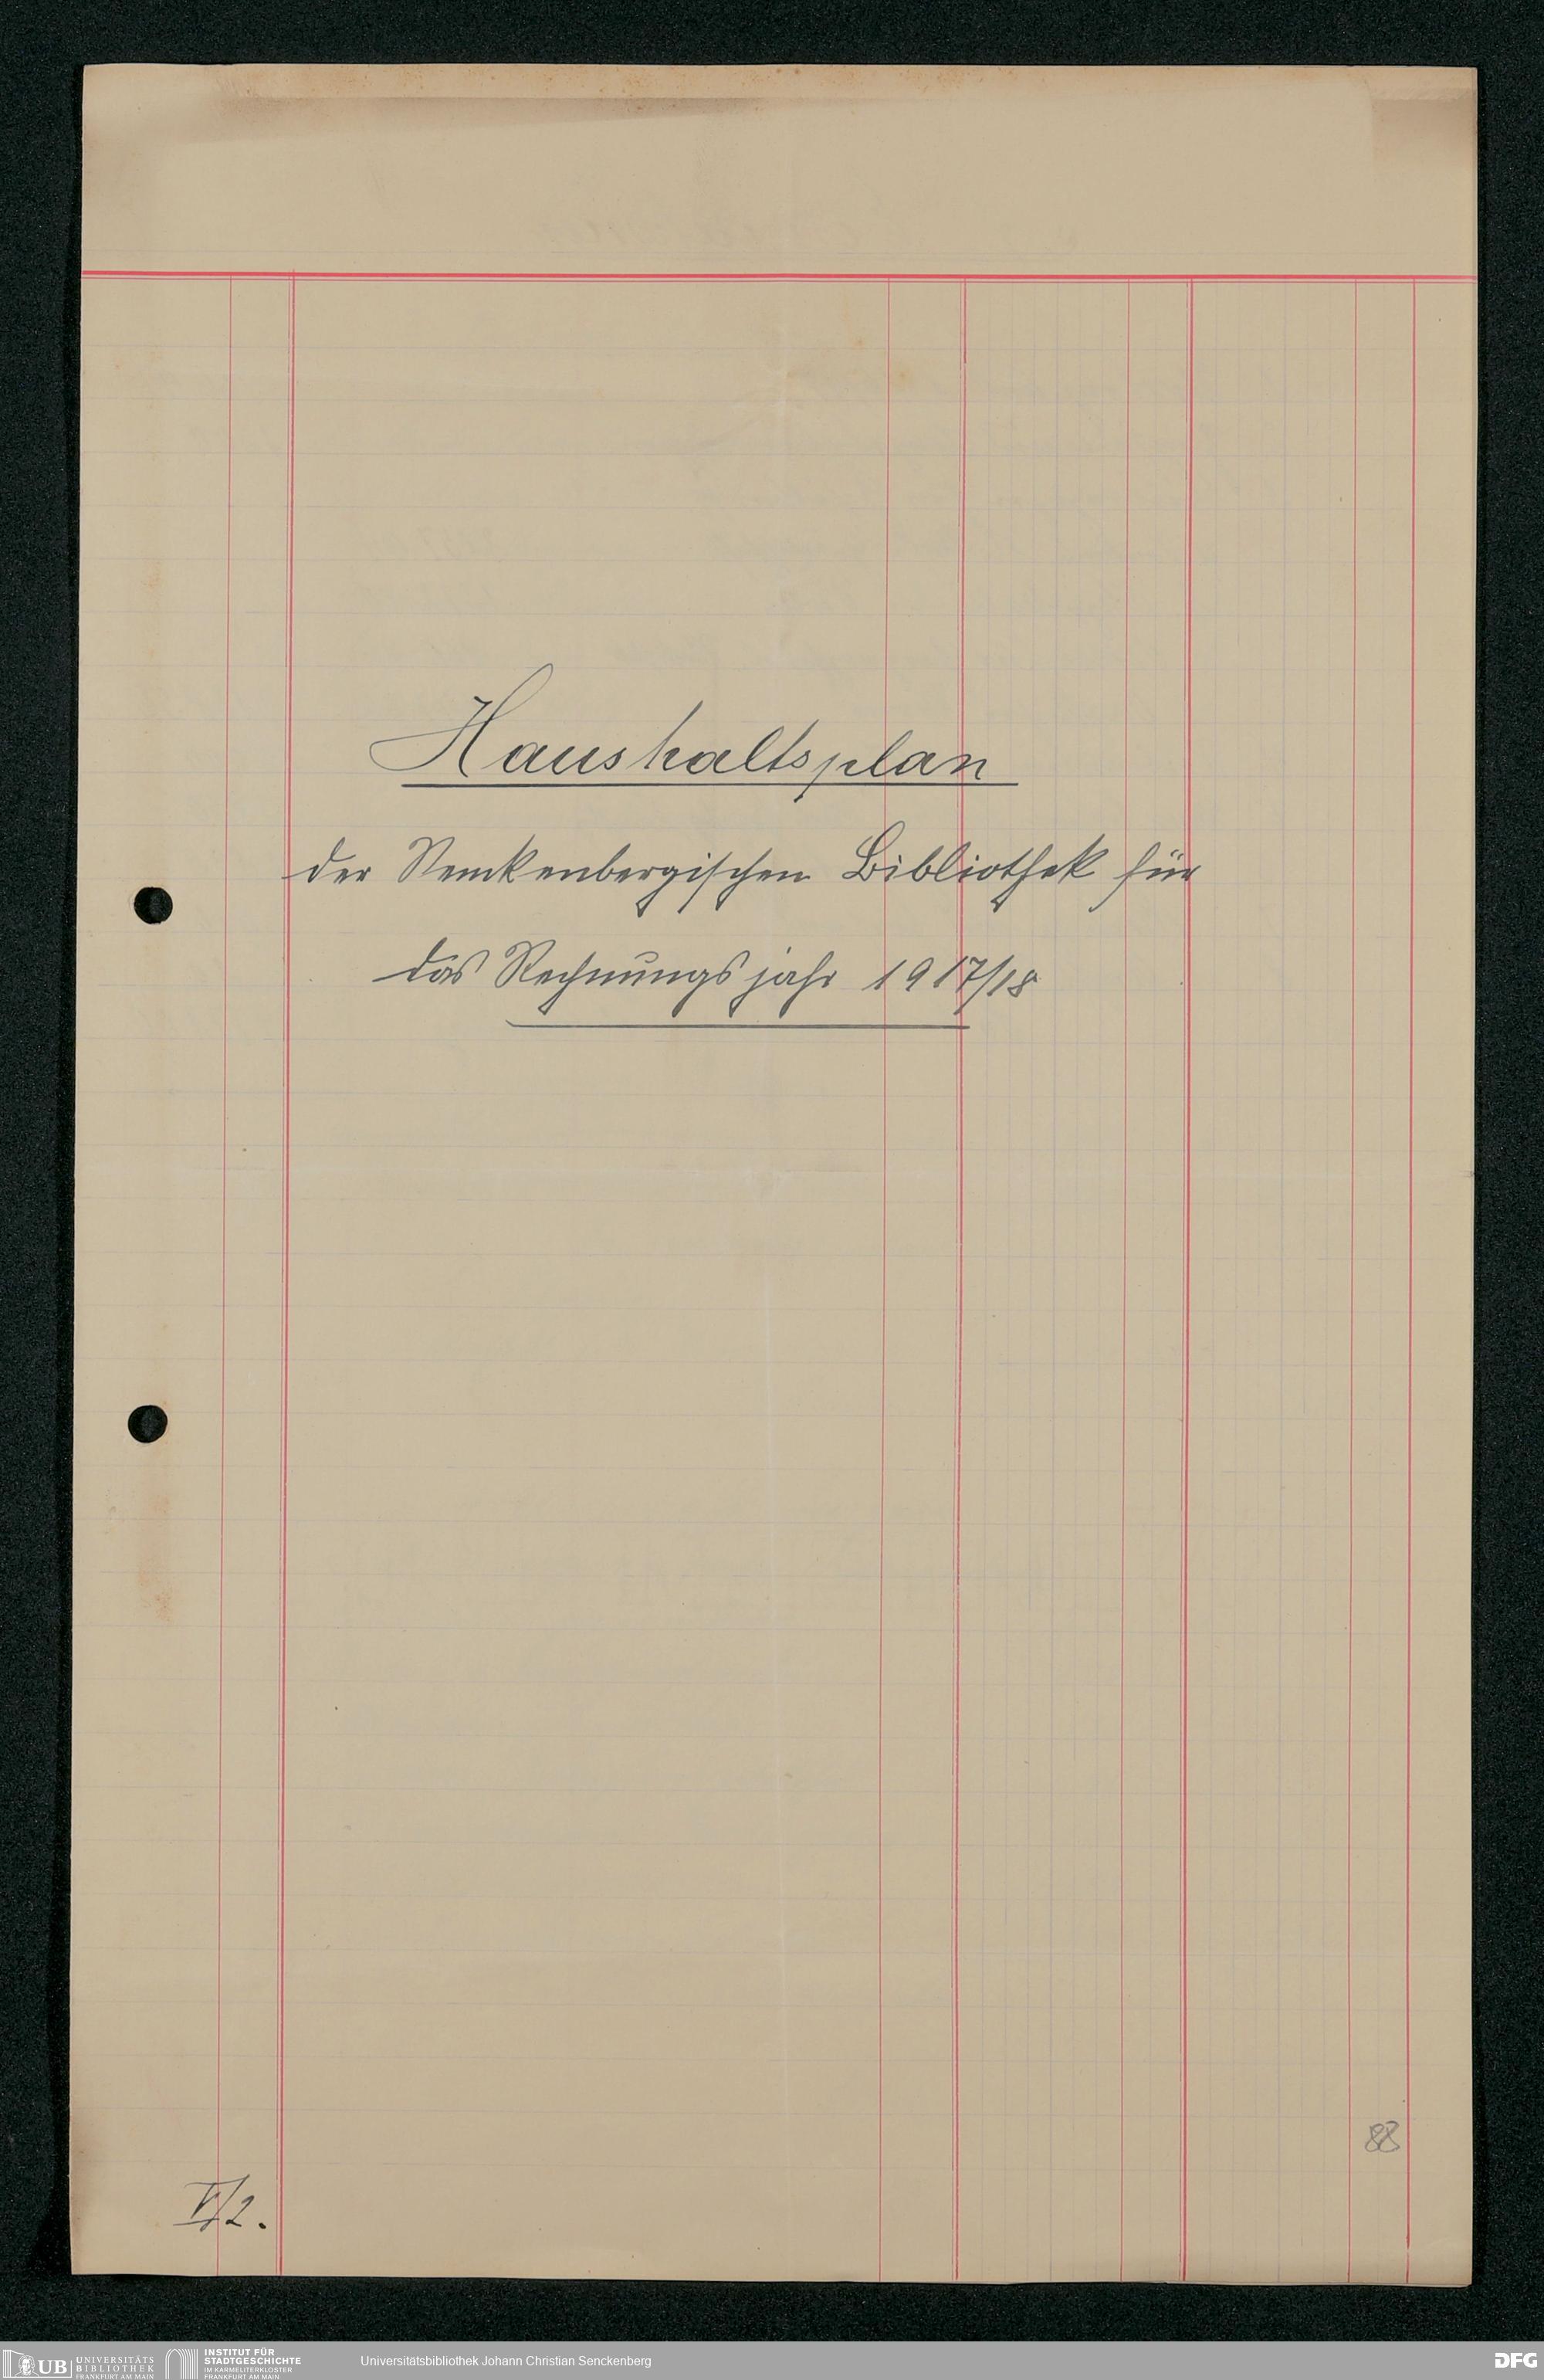 Haushaltsplan
der Senckenbergischen Bibliothek für
das Rechnungsjahr 1917/18
88
V/2.
UB UNIVERSITÄTS
BIBLIOTHEK
FRANKFURT AM MAIN
INSTITUT FÜR
STADTGESCHICHTE
IM KARMELITERKLOSTER
FRANKFURT AM MAIN
Universitätsbibliothek Johann Christian Senckenberg
DFG